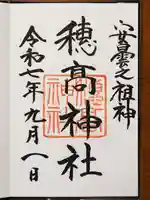 安曇之祖神
穂高神社
令和七年九月一日